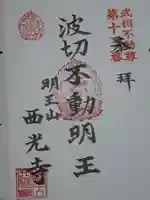 武相不動尊
第十
奉拝
波切不動明王
明王山
西光寺